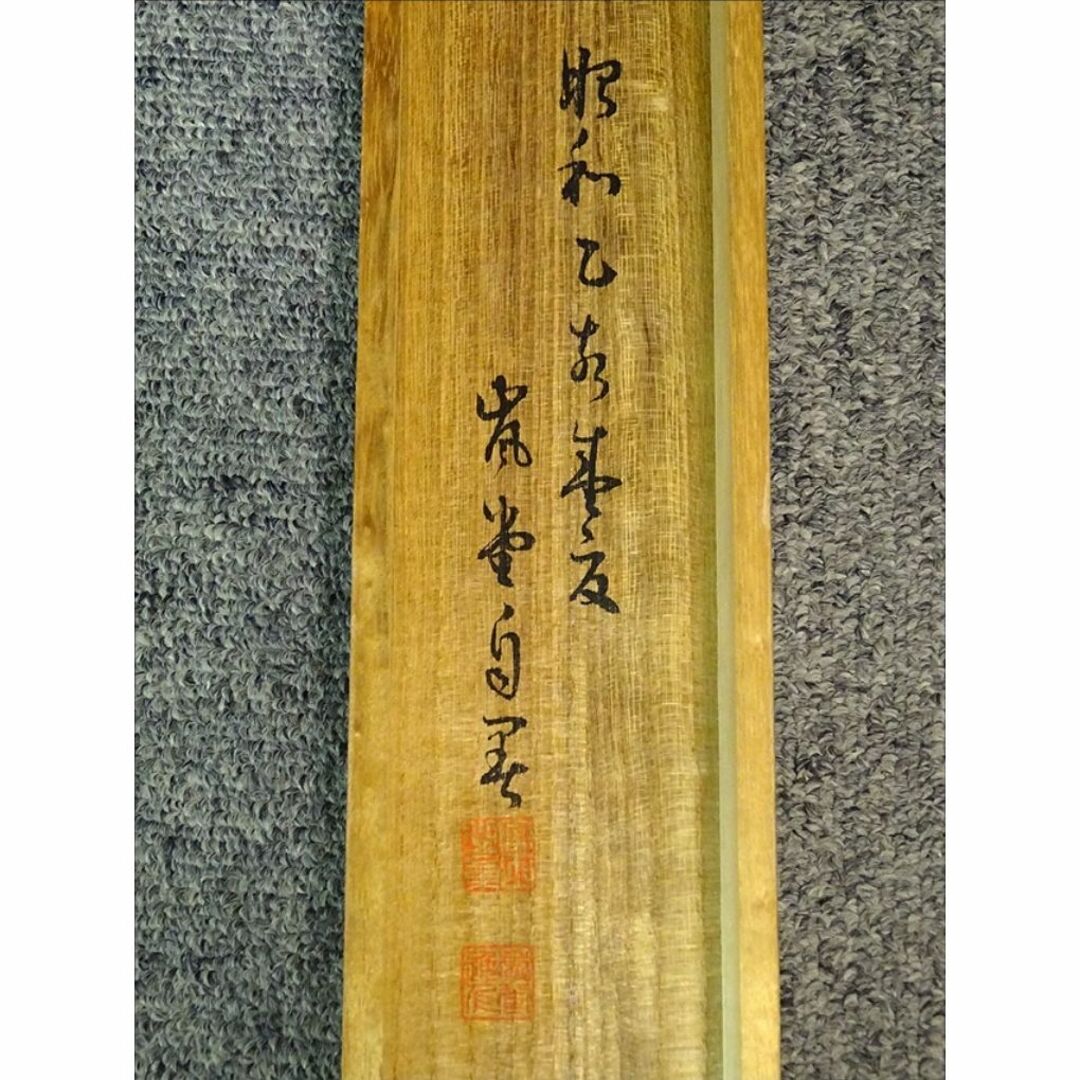 昭和乙亥盛夏
嵐堂自署